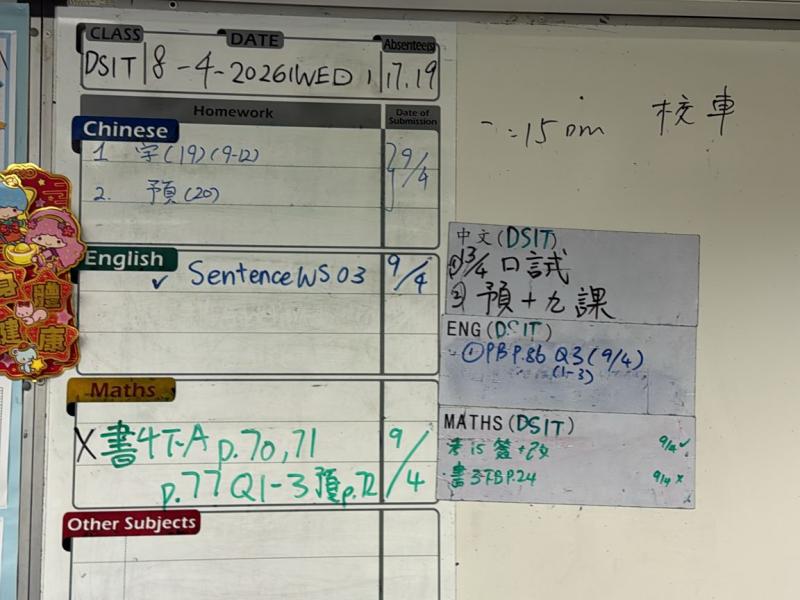 CLASS DATE Absentee(s)
DSIT 8-4-2026 WED 17.19
Homework Date of Submission
Chinese
1 字(19)(9-12) 9/4
2. 預(20)
English
✓ Sentence WS 03 9/4
Maths
X 書4下A p.70,71 9/4
p.77 Q1-3 預p.72
Other Subjects
校車
中文(DSIT)
① 13/4 口試
② 預十九課
ENG (DSIT)
① PB P.86 Q3 (9/4)
(1-3)
MATHS (DSIT)
15 簽+改 9/4 ✓
書3下B P.24 9/4 x
身體健康